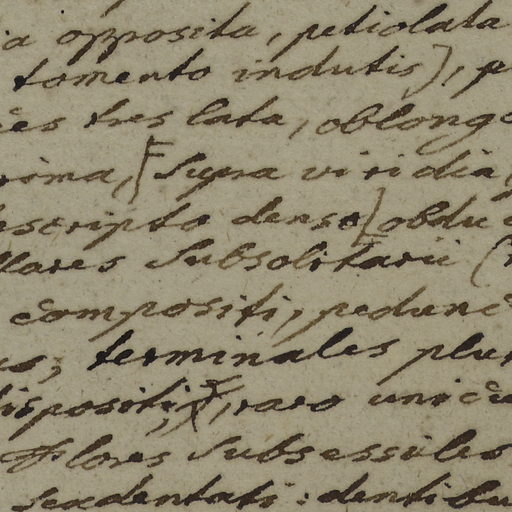 ia opposita, petiolata
tomento indutis), p
ces tres lata, oblong
rima, [supra viridia,
escripto denso] obdu
llares subsolitarii (
compositi, pedunc
us, terminales plur
dispositi, raro unicu
Flores subsessiles
sexdentati: dentibu